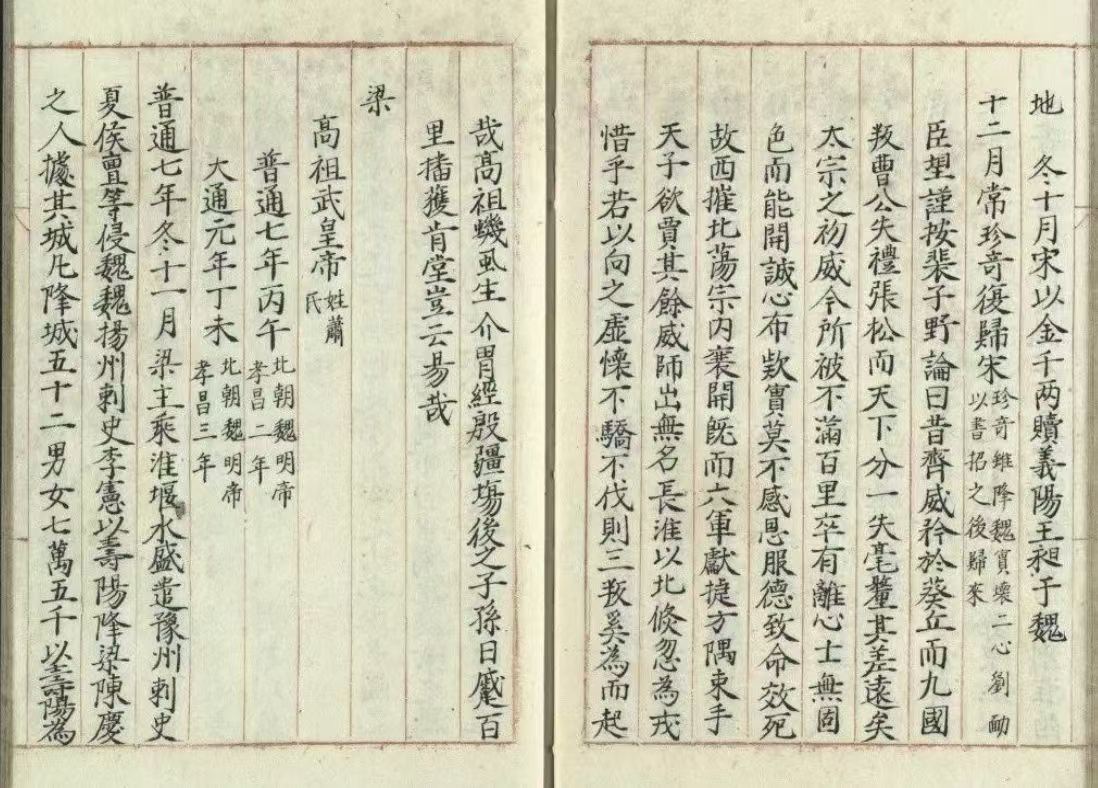 地　冬十月宋以金千两贖義陽王昶于魏
十二月常珍竒復歸宋珍竒雖降魏實壊二心劉勔
以書招之後歸来
臣堲謹按裴子野論曰昔齊威矜於葵丘而九國
叛曹公失禮張松而天下分一失毫釐其差逺矣
太宗之初威令所被不滿百里卒有離心士無固
色而能開誠心布欵實莫不感恩服德致命效死
故西摧北蕩宗内褰開旣而六軍獻捷方隅束手
天子欲賈其餘威師出無名長淮以北倐忽為戎
惜乎若以向之虚懷不驕不伐則三叛奚為而起
哉髙祖蟣虱生介胃經殷疆塲後之子孫日蹙百
里播獲肯堂豈云易哉
梁
髙祖武皇帝姓蕭
氏
普通七年丙午北朝魏明帝
孝昌二年
大通元年丁未北朝魏明帝
孝昌三年
普通七年冬十一月梁主乘淮堰水盛遣豫州刺史
夏侯亶等侵魏魏揚州刺史李憲以壽陽降梁陳慶
之入據其城凡降城五十二男女七萬五千以壽陽為